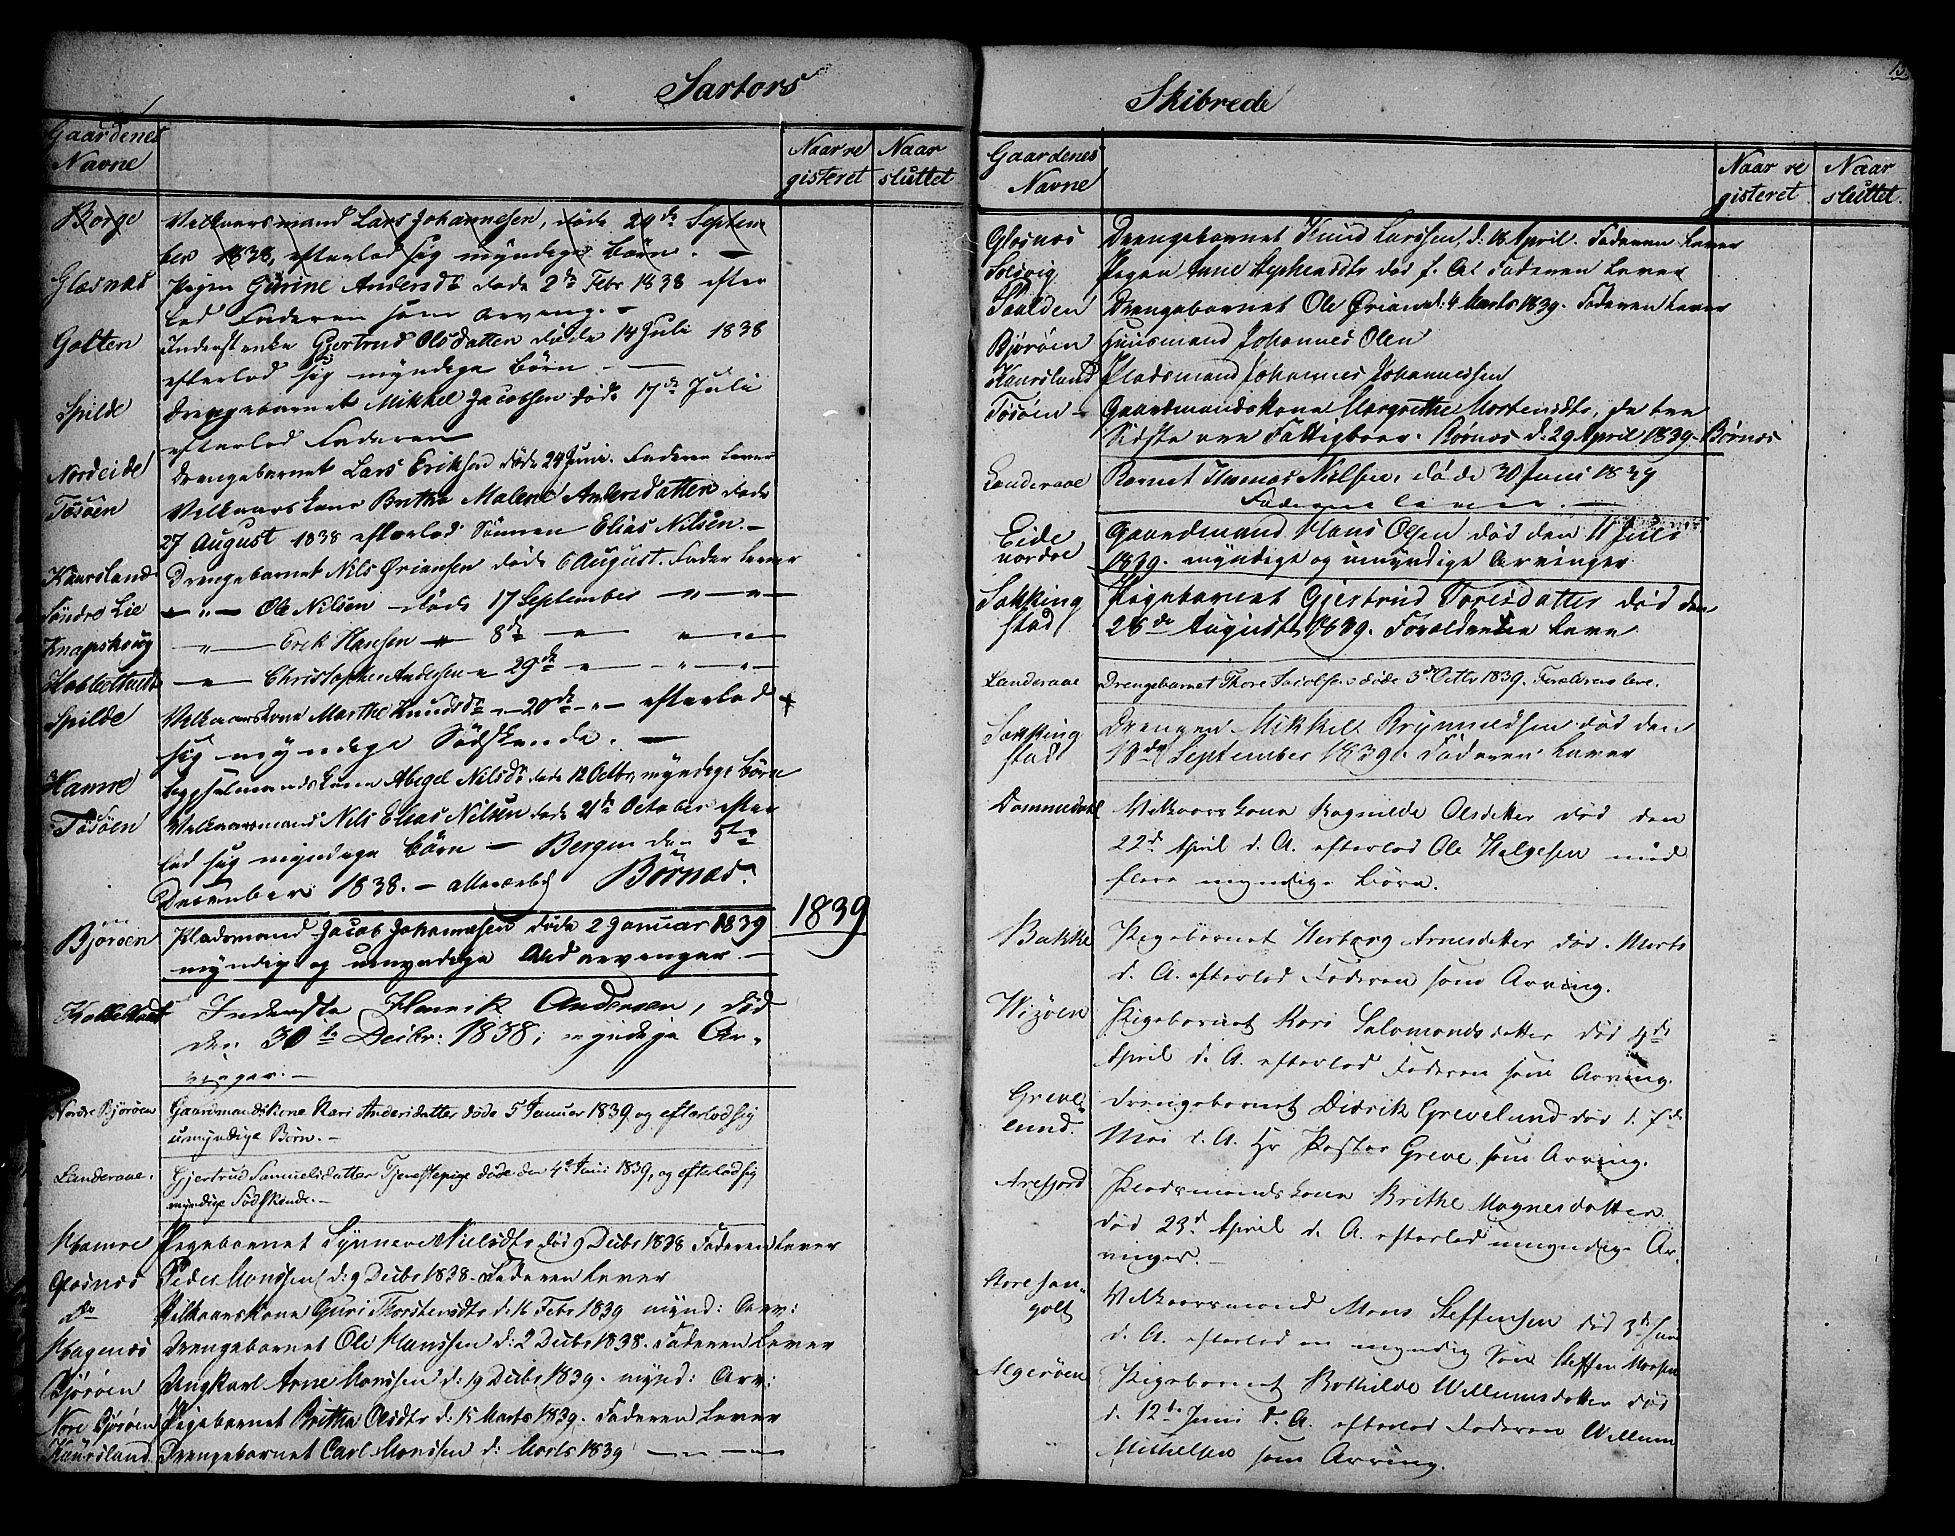 Sartors
Gaardenes
Navne
Naar re
gisteret
Naar
sluttet
Borge
Velkaarsmand Lars Johannesen, døde 24de Septem
ber 1838, efterlod sig myndige børn. —
Glæsnæs
Pigen Gurine Andersdtr døde 2de Febr 1838 efter
lod Faderen som arving. —
Golten
Inderst enke Gjertrud Olsdatter døde 14 Juli 1838
efterlod sig myndige børn —
Spilde
Drengebarnet Mikkel Jacobsen døde 17de Juli
efterlod Faderen
Nordeide
Drengebarnet Lars Eriksen døde 24 Juni. Faderen lever
Tösöen
Velkaarskone Britha Malene Andersdatter døde
27 August 1838 efterlod Sönnen Elias Nilsen —
Kaursland
Drengebarnet Nils Ørjansen døde 6 August. Fader lever
Söndre Lie
— „ — Ole Nilsen — døde 17 September „ — „ —
Knapskoug
— „ — Erik Hansen „ 8de — „ — „ — „ —
Kobbeltvedt
— „ — Christopher Andersen „ 29de — „ — „ — „ —
Spilde
Velkaarskone Marthe Knudsdtr — „ — 20de — „ — efterlod
sig myndige Södskende. —
Hamre
Oppholmandskonen Abegel Nilsdtr døde 12 Octbr, myndige børn
Tösöen
Velkaarsmand Nils Elias Nilsen døde 21de October efter
lod sig myndige børn — Bergen den 5te
December 1838. — Börnæs.
1839
Bjoröen
Pladsmand Jacob Johannesen døde 2 Januar 1839
myndig og umyndige arvinger —
Kobbeltvedt
Inderste Henrik Andersen, død
den 30te Decbr: 1838; myndige Ar-
vinger. —
Nordre Bjoröen
Gaardmandskone Kari Andersdatter døde 5 Januar 1839 og efterlod sig
umyndige Börn. —
Landeraae.
Gjertrud Samuelsdatter Tjenestepige døde den 4de Juni 1839, og efterlod sig
myndige Södskende. —
Hamre
Pigebarnet Synneve Nielsdtr død 9 Decbr 1838 Faderen Lever
Glæsnæs
Peder Monssen d: 9 Decbr 1838. Faderen Lever
do
Velkaarskone Guri Thorstensdtr d: 16 Febr 1839 mynd: Arv:
Hagenæs
Drengebarnet Ole Hanssen d: 2 Decbr 1838. Faderen Lever
Björöen
Ungkarl Arne Monssen d: 19 Decbr 1839. mynd: Arv:
Nore Björöen
Pigebarnet Britha Olsdtr d: 15 Marts 1839. Faderen Lever
Kaursland
Drengebarnet Carl Monssen d: Marts 1839 — „ — „ —
Skibrede
Gaardenes
Navne
Naar re
gisteret
Naar
sluttet.
Glæsnæs
Drengebarnet Knud Larssen, d: 18 April. Faderen Lever
Solsvig
Pigen Anne Stephensdtr død f: A: Faderen Lever
Saalden
Drengebarnet Ole Ørians: d: 4 Marts 1839. Faderen Lever
Björöen
Huusmand Johannes Olsen
Kaursland
Pladsmand Johannes Johannessen
Tösöen —
Gaardmandskone Margrethe Mortensdtr, de tre
Sidste ere Fattigboer. Börnæs d: 29 April 1839. Börnæs
Landeraae
Barnet Thomas Nilsen, døde 30 Juni 1839
Faderen lever. —
Eide
nordre
Gaardmand Hans Olsen død den 11 Juli
1839. myndige og umyndige Arvinger
Sækking
stad
Pigebarnet Gjertrud Toresdatter død den
28de August 1839. Forældrene Leve
Landeraae
Drengebarnet Thore Jacobsen døde 3de Octbr 1839. Forældrene leve.
Sækking
stad
Drengen Mikkel Brynnildsen død den
10de September 1839. Faderen Lever
Dommedal
Velkaarskone Ragnilde Olsdatter død den
22de April d. A. efterlod Ole Helgesen med
flere myndige börn.
Bakke
Pigebarnet Herborg Arnesdatter død Marts
d. A. efterlod Faderen som Arving.
Wizöen
Pigebarnet Kari Salomonsdatter død 4de
April d. A. efterlod Faderen som Arving.
Greve-
lund.
Drengebarnet Didrik Grevelund død d. 7de
Mai d. A. Hr Pastor Greve som Arving.
Arefjord
Pladsmandskone Brithe Magnesdatter
død 23de April d. A. efterlod umyndige Ar-
vinger. —
Store San-
golt
Velkaarsmand Mons Steffensen død 3de Juni
d. A. efterlod en myndig Sön Steffen Monsen
Algeröen
Pigebarnet Bothilde Willumsdatter død
d. 12te Juni d. A. efterlod Faderen Willum
Mikkelsen som Arving.